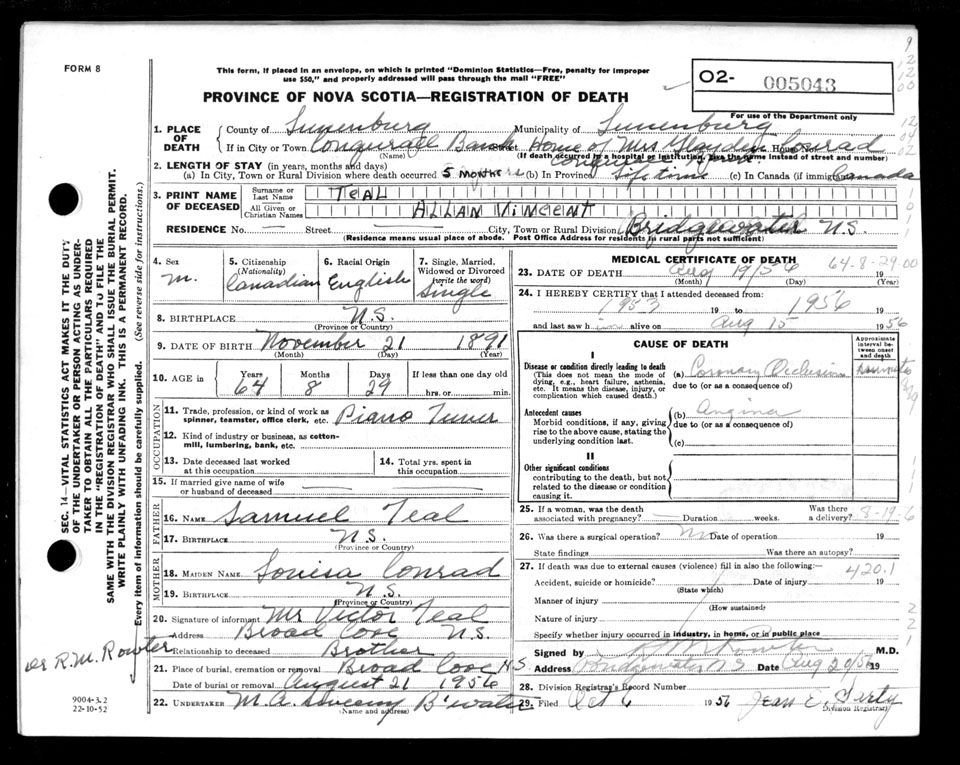 FORM 8
This form, if placed in an envelope, on which is printed "Dominion Statistics—Free, penalty for improper
use $50," and properly addressed will pass through the mail "FREE"
PROVINCE OF NOVA SCOTIA—REGISTRATION OF DEATH
O2- 005043
For use of the Department only
1. PLACE OF DEATH
County of Lunenburg Municipality of Lunenburg
If in City or Town Conquerall Bank Street Home of Mrs Conrad House No.
(Name) (If death occurred in a hospital or institution, give the name instead of street and number)
2. LENGTH OF STAY (in years, months and days)
(a) In City, Town or Rural Division where death occurred 5 months (b) In Province Life time (c) In Canada (if immigrant) Canada
3. PRINT NAME OF DECEASED
Surname or Last Name TEAL
All Given or Christian Names ALLAN VINCENT
RESIDENCE No. — Street — City, Town or Rural Division Bridgewater N.S.
(Residence means usual place of abode. Post Office Address for residents in rural parts not sufficient)
4. Sex M.
5. Citizenship (Nationality) Canadian
6. Racial Origin English
7. Single, Married, Widowed or Divorced (write the word) Single
8. BIRTHPLACE N.S.
(Province or Country)
9. DATE OF BIRTH November 21 1891
(Month) (Day) (Year)
10. AGE in Years 64 Months 8 Days 29 If less than one day old hrs. or min.
OCCUPATION
11. Trade, profession, or kind of work as spinner, teamster, office clerk, etc. Piano Tuner
12. Kind of industry or business, as cotton-mill, lumbering, bank, etc.
13. Date deceased last worked at this occupation
14. Total yrs. spent in this occupation
15. If married give name of wife or husband of deceased
FATHER
16. NAME Samuel Teal
17. BIRTHPLACE N.S.
(Province or Country)
MOTHER
18. MAIDEN NAME Louisa Conrad
19. BIRTHPLACE N.S.
(Province or Country)
20. Signature of informant Mr Victor Teal
Address Broad Cove N.S.
Relationship to deceased Brother
21. Place of burial, cremation or removal Broad Cove N.S.
Date of burial or removal August 21 1956
22. UNDERTAKER M.A. B'water
(Name and address)
MEDICAL CERTIFICATE OF DEATH
23. DATE OF DEATH Aug 19/56 19
64-8-29.00
(Month) (Day) (Year)
24. I HEREBY CERTIFY that I attended deceased from:
1953 19 to 1956
and last saw h im alive on Aug 15 1956
CAUSE OF DEATH
Approximate interval between onset and death
I
Disease or condition directly leading to death
(This does not mean the mode of dying, e.g., heart failure, asthenia, etc. It means the disease, injury, or complication which caused death.)
(a) Coronary Occlusion
due to (or as a consequence of)
Antecedent causes
Morbid conditions, if any, giving rise to the above cause, stating the underlying condition last.
(b) Angina
due to (or as a consequence of)
(c)
II
Other significant conditions
contributing to the death, but not related to the disease or condition causing it.
25. If a woman, was the death associated with pregnancy? — Duration weeks. Was there a delivery? 8-19-6
26. Was there a surgical operation? No Date of operation 19
State findings Was there an autopsy?
27. If death was due to external causes (violence) fill in also the following:— 420.1
Accident, suicide or homicide? Date of injury 19
(State which)
Manner of injury
(How sustained)
Nature of injury
Specify whether injury occurred in industry, in home, or in public place
Signed by R M Rowter M.D.
Address Bridgewater N S Date Aug 20/56 19
28. Division Registrar's Record Number
29. Filed Oct 6 1956 Jean E.
Division Registrar
SEC. 14—VITAL STATISTICS ACT MAKES IT THE DUTY
OF THE UNDERTAKER OR PERSON ACTING AS UNDERTAKER
TO OBTAIN ALL THE PARTICULARS REQUIRED
IN THE "REGISTRATION OF DEATH" AND TO FILE THE
SAME WITH THE DIVISION REGISTRAR WHO SHALL ISSUE THE BURIAL PERMIT.
WRITE PLAINLY WITH UNFADING INK. THIS IS A PERMANENT RECORD.
Every item of information should be carefully supplied. (See reverse side for instructions.)
Dr R.M. Rowter
9004-3.2
22-10-52